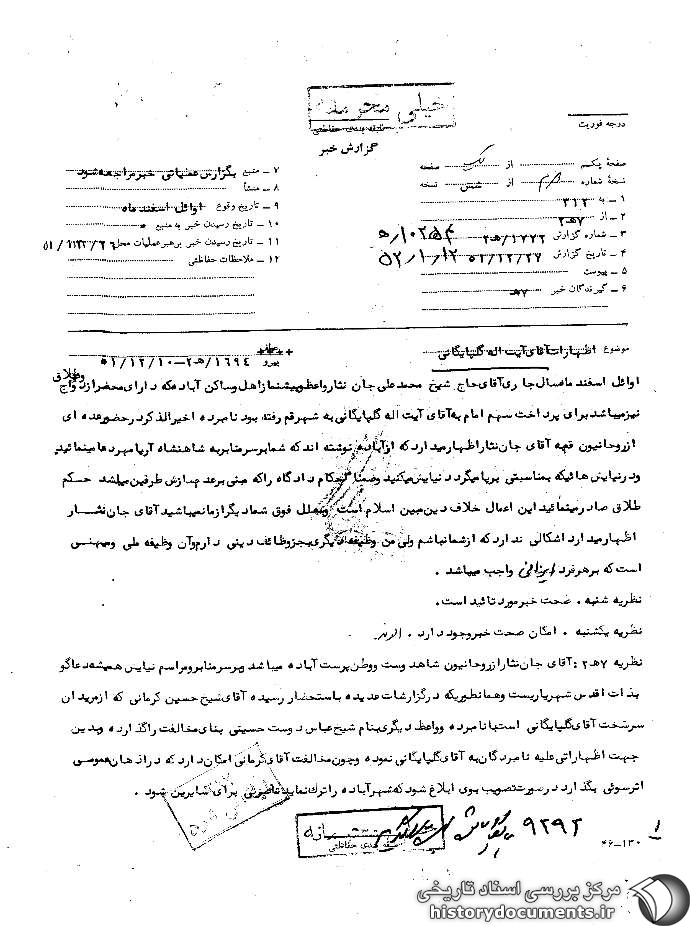 خیلی محرمانه
طبقه بندی حفاظتی
گزارش خبر
درجه فوریت
صفحه یکم از یک صفحه
نسخه شماره از شش نسخه
۱ – به ۳۱۲
۲ – از ۷ه۲
۳ – شماره گزارش ۱۷۲۲/ه۲
۴ – تاریخ گزارش ۵۱/۱۲/۲۷
۵۲/۱/۱۲
۵ – پیوست
۶ – گیرندگان خبر
۷ – منبع بگزارش عملیاتی خبر مراجعه شود
۸ – منشأ
۹ – تاریخ وقوع اوائل اسفند ماه
۱۰ – تاریخ رسیدن خبر به منبع
۱۱ – تاریخ رسیدن خبر برهبر عملیات محل
۱۲ – ملاحظات حفاظتی
موضوع اظهارات آقای آیت اله گلپایگانی
پیرو ۱۶۹۴/ه۲–۵۱/۱۲/۱۰
اوائل اسفند ماه سال جاری آقای حاج شیخ محمد علی جان نثار واعظ و پیشنماز اهل و ساکن آباده که دارای محضر ازدواج وطلاق
نیز میباشد برای پرداخت سهم امام به آقای آیت اله گلپایگانی به شهر قم رفته بود نامبرده اخیرالذکر در حضور عده ای
از روحانیون قم به آقای جان نثار اظهار میدارد که از آباده نوشته اند که شما بر سر منابر به شاهنشاه آریامهر دعا مینمائید
و در نیایش هائیکه بمناسبتی برپا میگردد نیایش میکنید وضمنا احکام دادگاه را که مبنی بر عدم سازش طرفین میباشد حکم
طلاق صادر مینمائید این اعمال خلاف دین مبین اسلام است وبعلل فوق شما دیگر از ما نمیباشید آقای جان نثار
اظهار میدارد اشکالی ندارد که از شما نباشم ولی من وظیفه دیگری بجز وظائف دینی دارم و آن وظیفه ملی و میهنی
است که بر هر فرد ایرانی واجب میباشد .
نظریه شنبه . صحت خبر مورد تائید است .
نظریه یکشنبه . امکان صحت خبر وجود دارد .
نظریه ۷ه۲ : آقای جان نثار از روحانیون شاهدوست و وطن پرست آباده میباشد و بر سر منابر و مراسم نیایش همیشه دعاگو
بذات اقدس شهریاریست و همانطوریکه در گزارشات عدیده باستحضار رسیده آقای شیخ حسین کرمانی که از مریدان
سرسخت آقای گلپایگانی است با نامبرده و واعظ دیگری بنام شیخ عباس دوست حسینی بنای مخالفت را گذارده و بدین
جهت اظهاراتی علیه نامبردگان به آقای گلپایگانی نموده و چون مخالفت آقای کرمانی امکان دارد که در اذهان عمومی
اثر سوئی بگذارد در صورت تصویب بوی ابلاغ شود که شهر آباده را ترک نماید تا عبرتی برای سایرین شود .
۹۲۹۲
۴۶–۱۳۰
مرکز بررسی اسناد تاریخی
historydocuments.ir